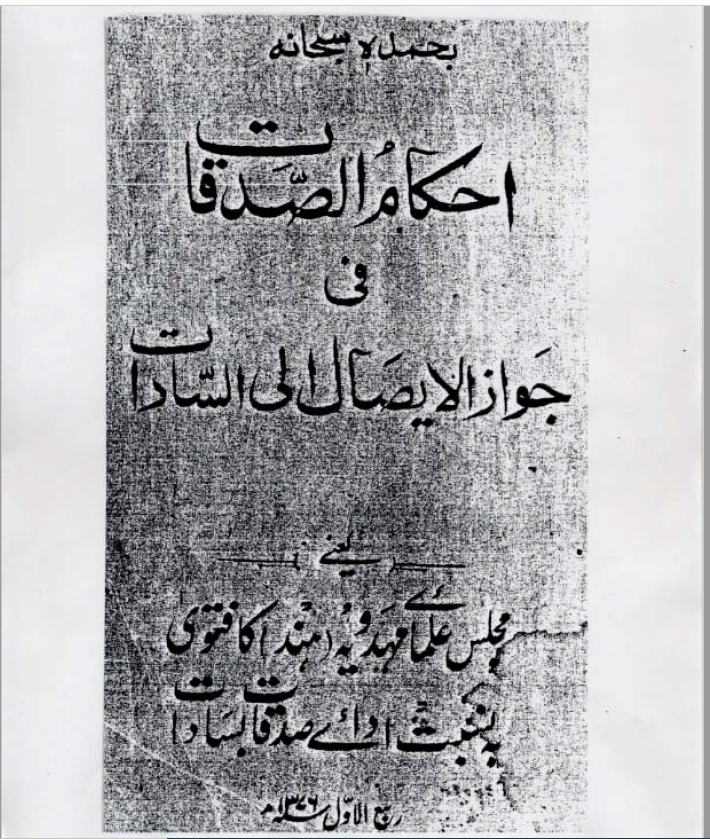 بحمدہٖ سبحانہ
احکامُ الصَّدقات
فی
جَواز الایصَال الی السَّادات
یعنے
مجلس علمائے مہدویہ (ہند) کا فتویٰ
بہ نسبت ادائے صدقات بسَادات
ربیع الاوّل ۱۳۷۶ھ